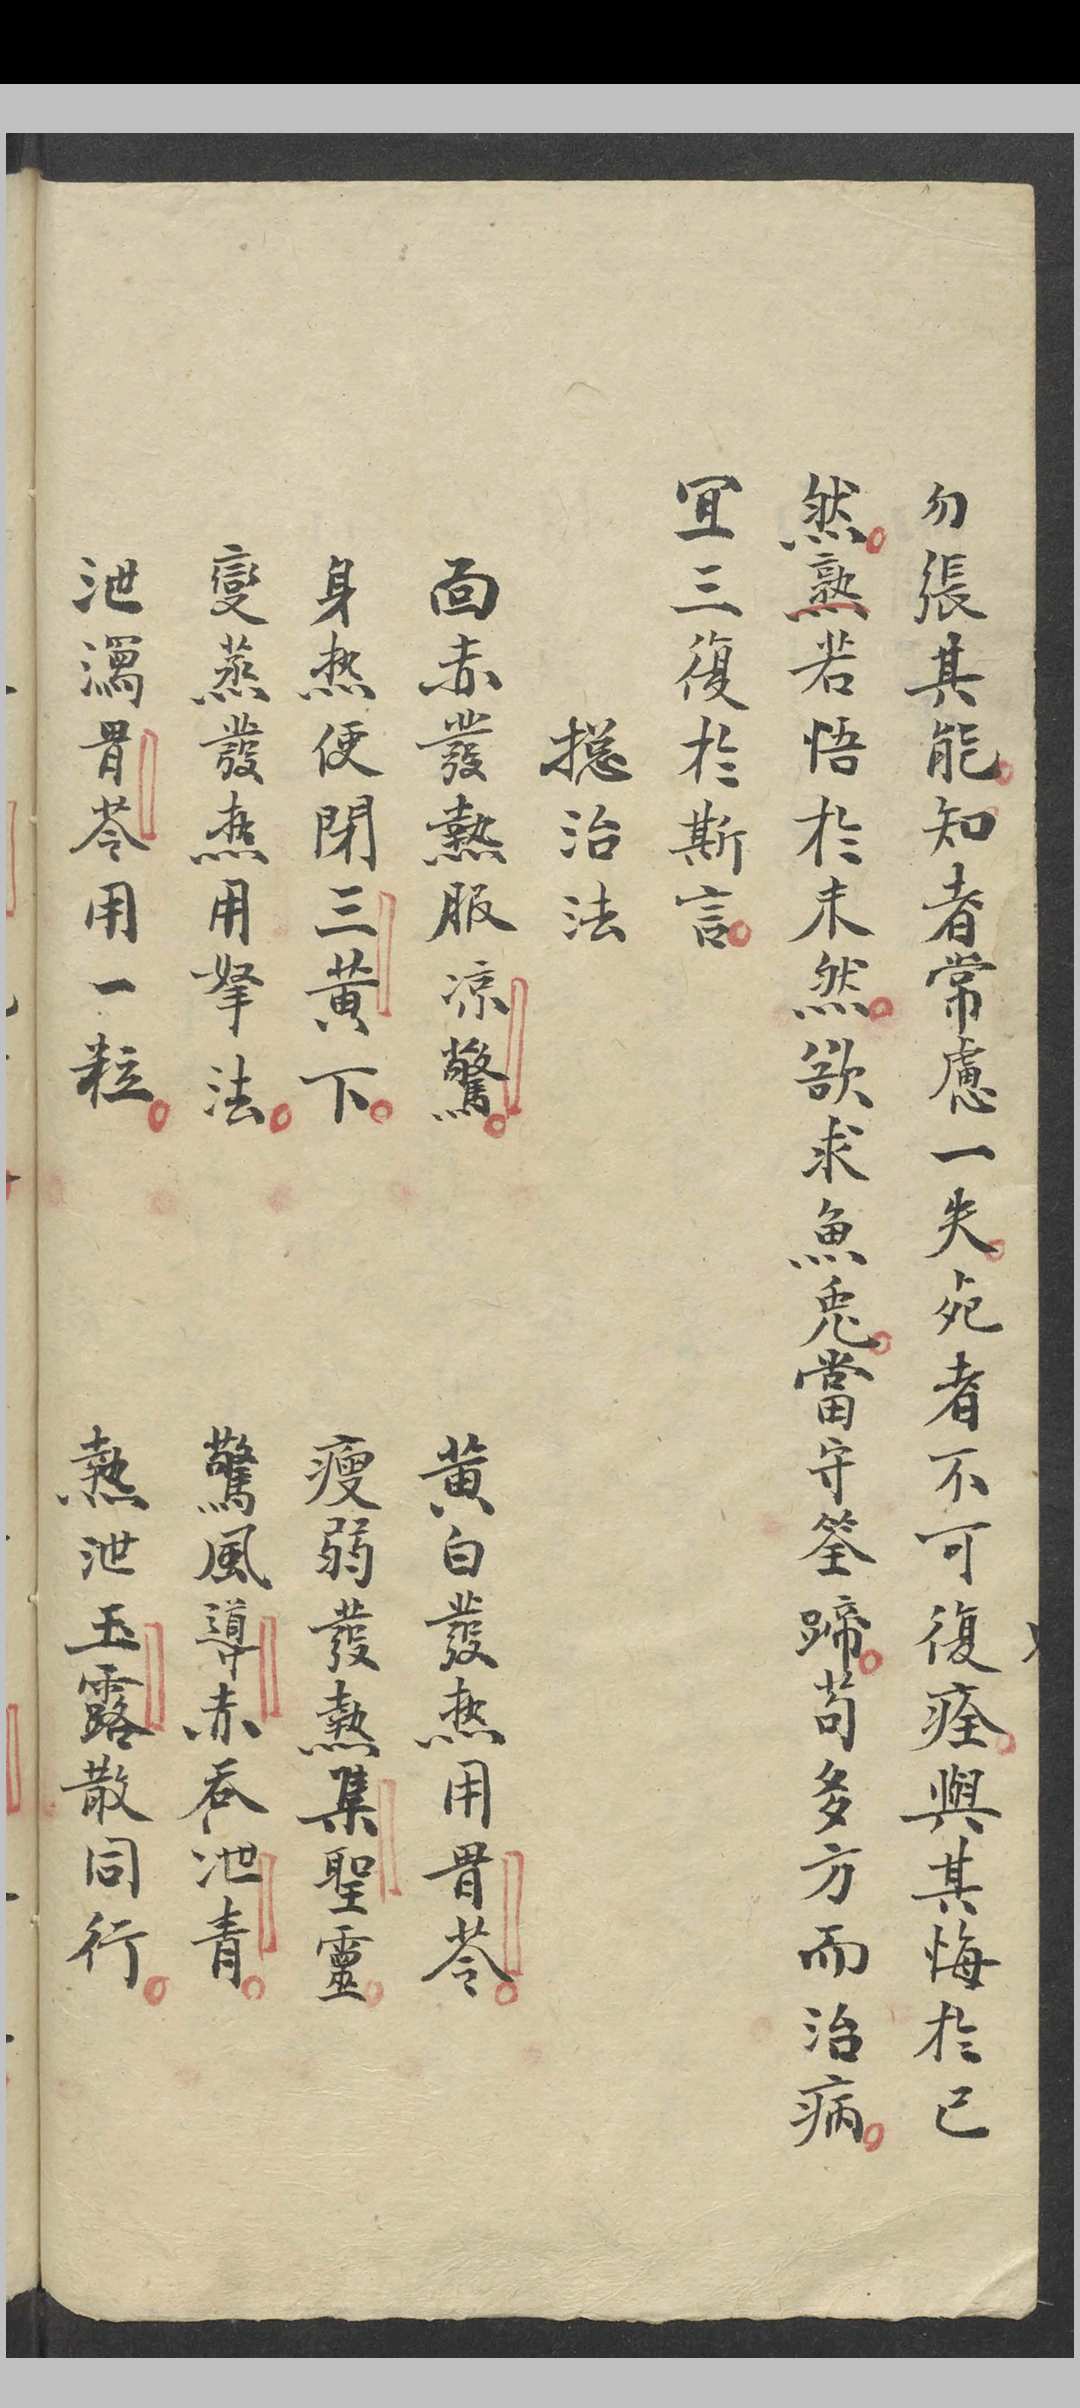 勿張其能知者常慮一失死者不可復痊與其悔於已
然熟若悟於未然欲求魚兎當守筌蹄苟多方而治病
宜三復於斯言
揔治法
面赤發熱服凉驚 黃白發热用胃苓
身热便閉三黃下 瘦弱發熱集聖靈
變蒸發热用拏法 驚風導赤吞泄青
泄瀉胃苓用一粒 熱泄玉露散同行